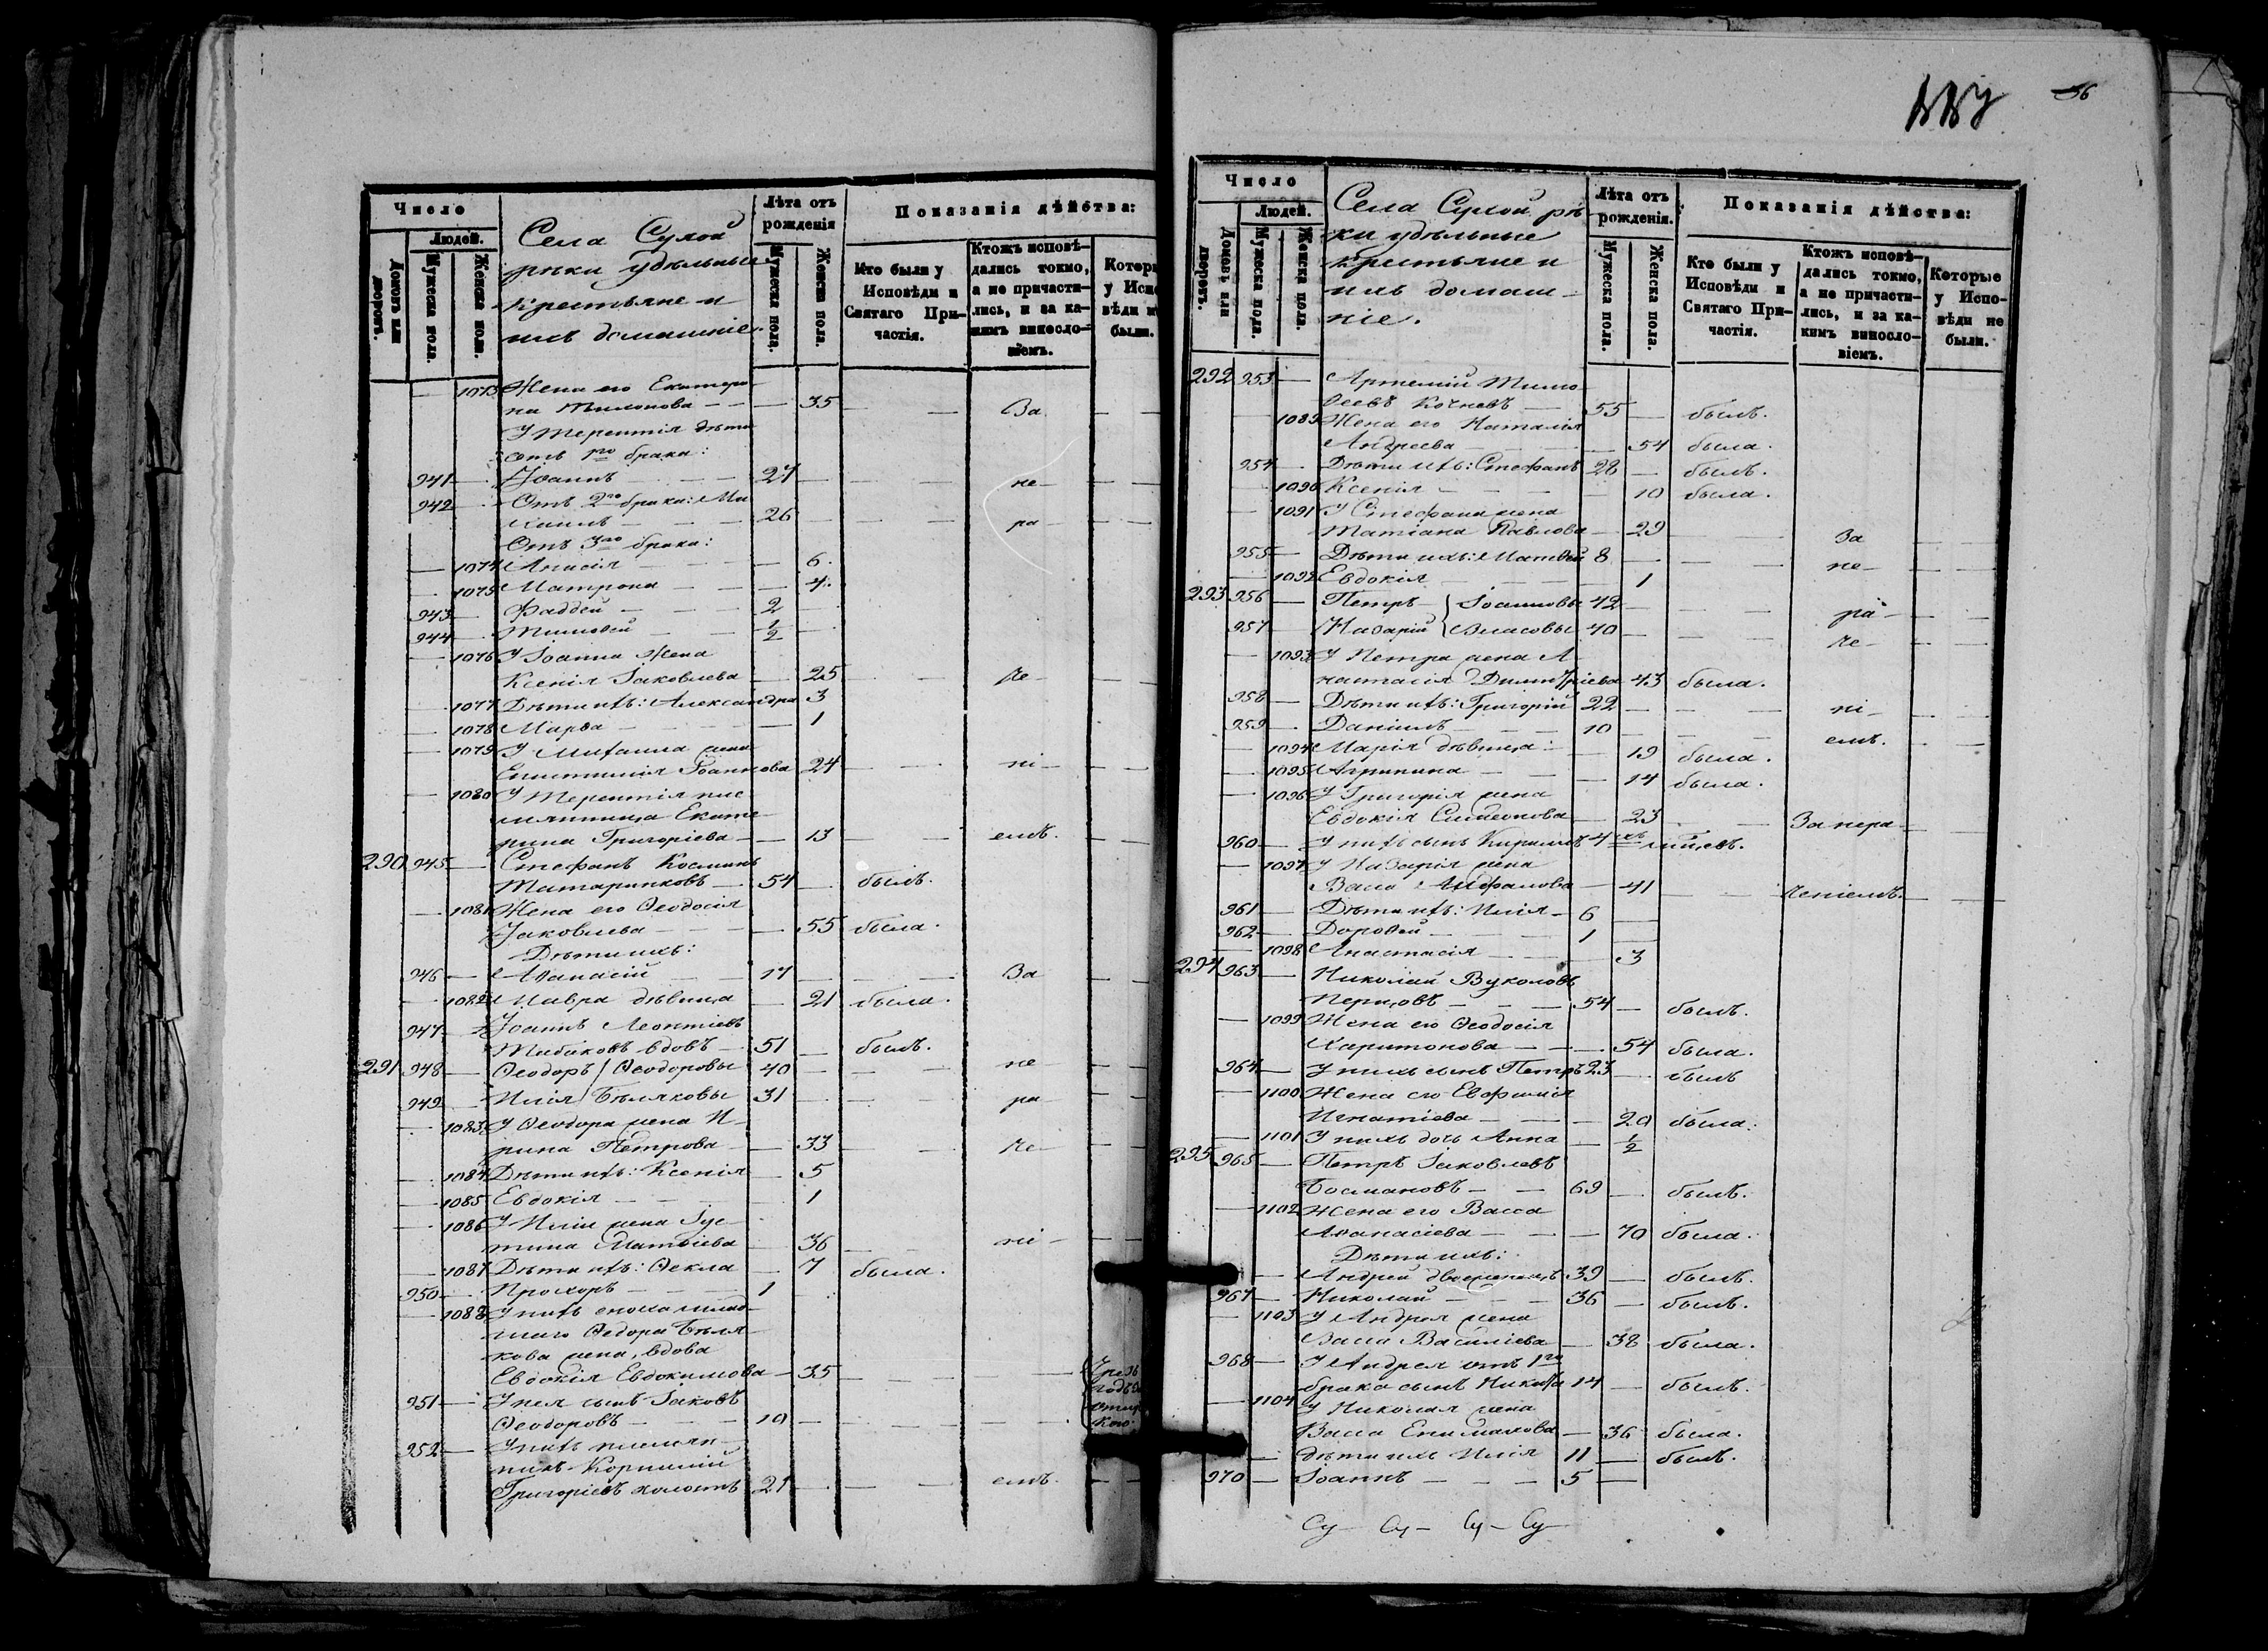 Число
Людей.
Домовъ или дворовъ.
Мужеска пола.
Женска пола.
Села Сухой
рѣки удѣльные
крестьяне и
ихъ домашніе.
Лѣта отъ
рожденія
Мужеска пола.
Женска пола.
Показанія дѣйства:
Кто были у
Исповѣди и
Святаго При-
частія.
Ктожъ исповѣ-
дались токмо,
а не причасти-
лись, и за ка-
кимъ винословіемъ.
Котор
у Исп
вѣди н
были.
— 1073 Жена его Екатери-
на Тихонова — — — 35 — — За — —
У Терентія дѣти
отъ 1го брака:
941 — Іоаннъ — — 27 — — — не — —
942 — Отъ 2го брака: Ми
хаилъ — — 26 — — — ра — —
Отъ 3го брака:
— 1074 Анисія — — — 6.
— 1075 Матрона — — — 4.
943 — Фаддей — — 2 —
944 — Тимофей — — 1/2 —
— 1076 У Іоанна жена
Ксенія Іаковлева — 25 — — че — —
— 1077 Дѣти ихъ: Александра 3
— 1078 Марѳа — — — 1
— 1079 У Михаила жена
Епистимія Іоаннова 24 — — ні — —
— 1080 У Терентія пле
мянница Екате
рина Григоріева — — 13 — — емъ. — —
290 945 — Стефанъ Косминъ
Татаринковъ — 54 — былъ.
— 1081 Жена его Ѳеодосія
Іаковлева — — — 55 была.
Дѣти ихъ:
946 — Аѳанасій — — 17 — — — За — —
— 1082 Мавра дѣвица — 21 была.
947 — Іоаннъ Леонтіевъ
вдовъ — 51 — былъ.
291 948 — Ѳеодоръ } Ѳеодоровы 40 — — — не — —
949 — Илія } Бѣляковы 31 — — — ра — —
— 1083 У Ѳеодора жена И-
рина Петрова — — 33 — — че — —
— 1084 Дѣти ихъ: Ксенія — 5
— 1085 Евдокія — — — 1
— 1086 У Иліи жена Іус-
тина Матвѣева — 36 — — ні — —
— 1087 Дѣти ихъ: Ѳекла — 7 была.
950 — Прохоръ — — 1
— 1088 У нихъ сноха
Ѳедора Бѣля-
кова жена, вдова
Евдокія Евдокимова — 35 — — —
951 — У нея сынъ Іаковъ
Ѳеодоровъ — — 10 — — —
952 — У нихъ племян-
никъ Корнилій
Григоріевъ холостъ 21 — — — емъ. — —
56
Число
Людей.
Домовъ или дворовъ.
Мужеска пола.
Женска пола.
Села Сухой рѣ
ки удѣльные
крестьяне и
ихъ домаш-
ніе.
Лѣта отъ
рожденія.
Мужеска пола.
Женска пола.
Показанія дѣйства:
Кто были у
Исповѣди и
Святаго При-
частія.
Ктожъ исповѣ-
дались токмо,
а не причасти-
лись, и за ка-
кимъ винословіемъ.
Которые
у Испо-
вѣди не
были.
292 953 — Артемій Тимо
ѳеевъ Кочневъ — 55 — былъ.
— 1089 Жена его Наталія
Андреева — — — 54 была.
954 — Дѣти ихъ: Стефанъ 28 — былъ.
— 1090 Ксенія — — — 10 была.
— 1091 У Стефана жена
Татіана Павлова — 29 — — За — —
955 — Дѣти ихъ: Матвей 8 — — — не — —
— 1092 Евдокія — — — 1
293 956 — Петръ } Іоанновы 42 — — — ра — —
957 — Назарій } Власовы 40 — — — че — —
— 1093 У Петра жена А-
настасія Димитріева 43 была.
958 — Дѣти ихъ: Григорій 22 — — — ні — —
959 — Даніилъ — — 10 — — — емъ. — —
— 1094 Марія дѣвица — — 19 была.
— 1095 Агрипина — — — 14 была.
— 1096 У Григорія жена
Евдокія Симеонова — 23 — — За нера —
960 — У нихъ сынъ Кириллъ 4хъ мѣсяцевъ.
— 1097 У Назарія жена
Васса — 41 — — ченіемъ. — —
961 — Дѣти ихъ: Илія — 6 —
962 — Дороѳей — — 1 —
— 1098 Анастасія — — — 3
294 963 — Николай Вуколовъ
Перцовъ — — 54 — былъ.
— 1099 Жена его Ѳеодосія
Харитонова — — — 54 была.
964 — У нихъ сынъ Петръ 23 — былъ
— 1100 Жена его Евфимія
Игнатіева — — — 20 была.
— 1101 У нихъ дочь Анна — 1/2
295 965 — Петръ Іаковлевъ
Босмановъ — — 69 — былъ.
— 1102 Жена его Васса
Аѳанасіева — — — 70 была.
Дѣти ихъ:
— Андрей двоеженецъ 39 — былъ.
967 — Николай — — 36 — былъ.
— 1103 У Андрея жена
Васса Василіева — 38 была.
968 — У Андрея отъ 1го
брака сынъ Никита 14 — былъ.
— 1104 У Николая жена
Васса Епимахова — 36 была.
— Дѣти ихъ Илія 11 — былъ.
970 — Іоаннъ — — 5 —